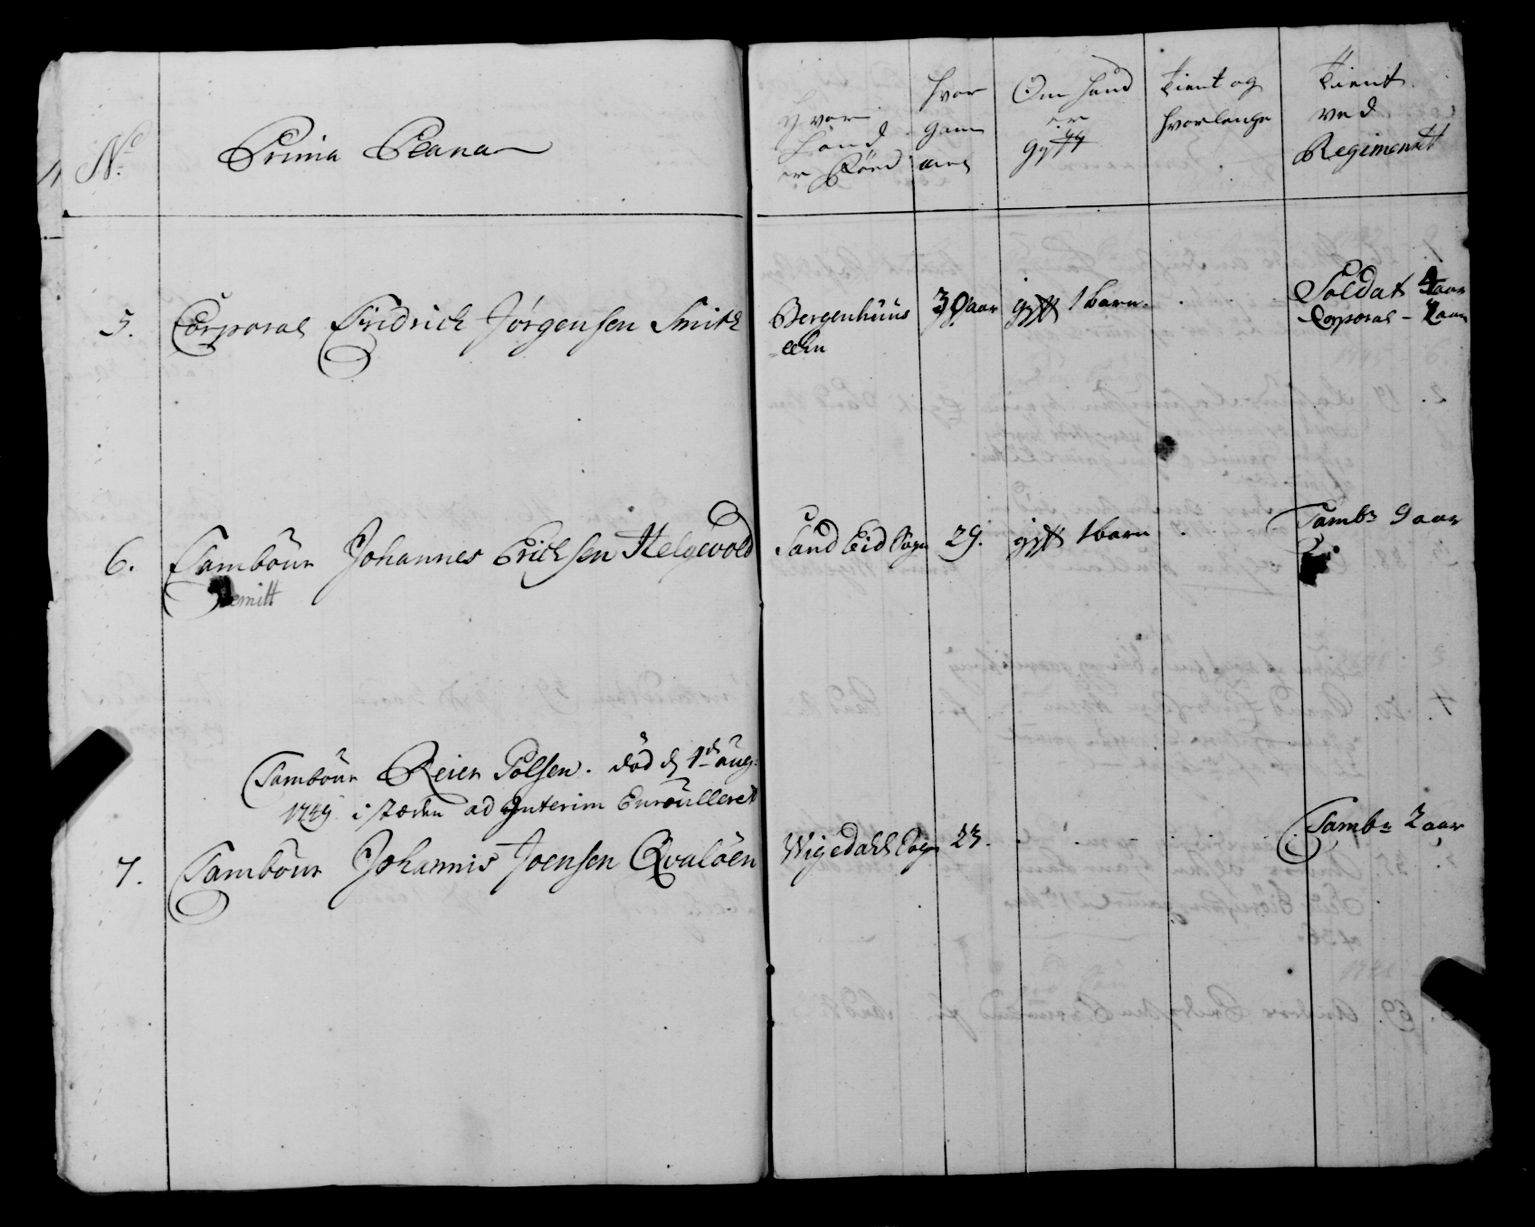 No. Prima Plana
Hvor hand er Föed
hvor gam̄ well
Om hand er gifft
tient og hvorlenge
tient ved Regimentet
5. Corporal Fridrich Jørgensen Smith Bergenhuus 30 aar gifft 1 barn. Soldat 4 aar
Corporal – 2 aar
6. Tambour Johannes Erichsen Helgevold Sand Eid Sogn 29. gifft 1 barn Tambr 9 aar
Demitt
Tambour Reier Polsen. död d 1de aug:
1749 i stæden ad Interim Enroulleret
7. Tambour Johannis Joensen Qvalöen Wigedahls Sogn 23. Tambr 2 aar